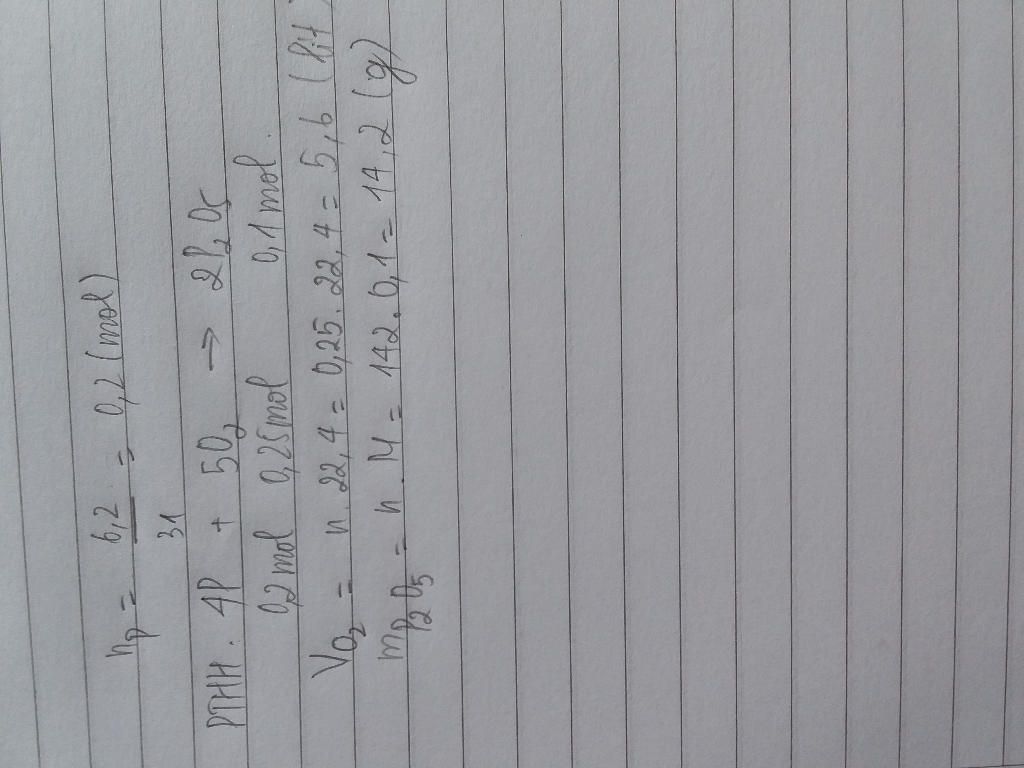 nP = 6,2 / 31 = 0,2 (mol)
PTHH. 4P + 5O2 → 2P2O5
0,2 mol 0,25 mol 0,1 mol.
VO2 = n. 22,4 = 0,25. 22,4 = 5,6 (lit)
mP2O5 = n. M = 142. 0,1 = 14,2 (g)